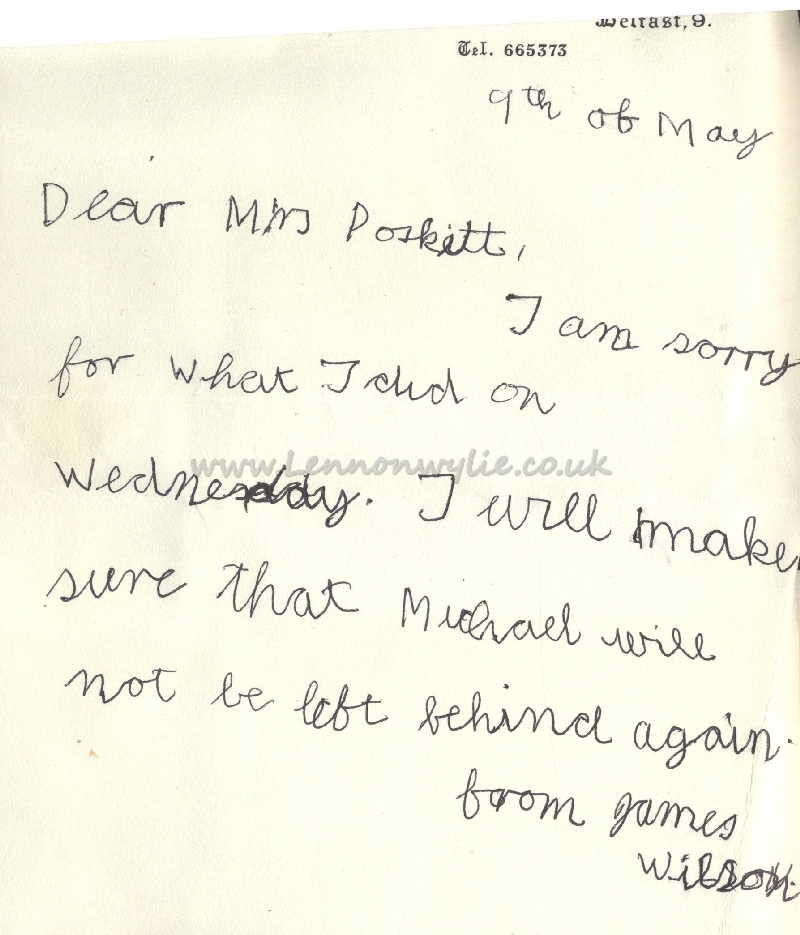 Belfast, 9.
Tel. 665373
9th of May
Dear Mrs Poskitt,
I am sorry
for what I did on
www.Lennonwylie.co.uk
Wednesday. I will make
sure that Michael will
not be left behind again.
from James
Wilson.